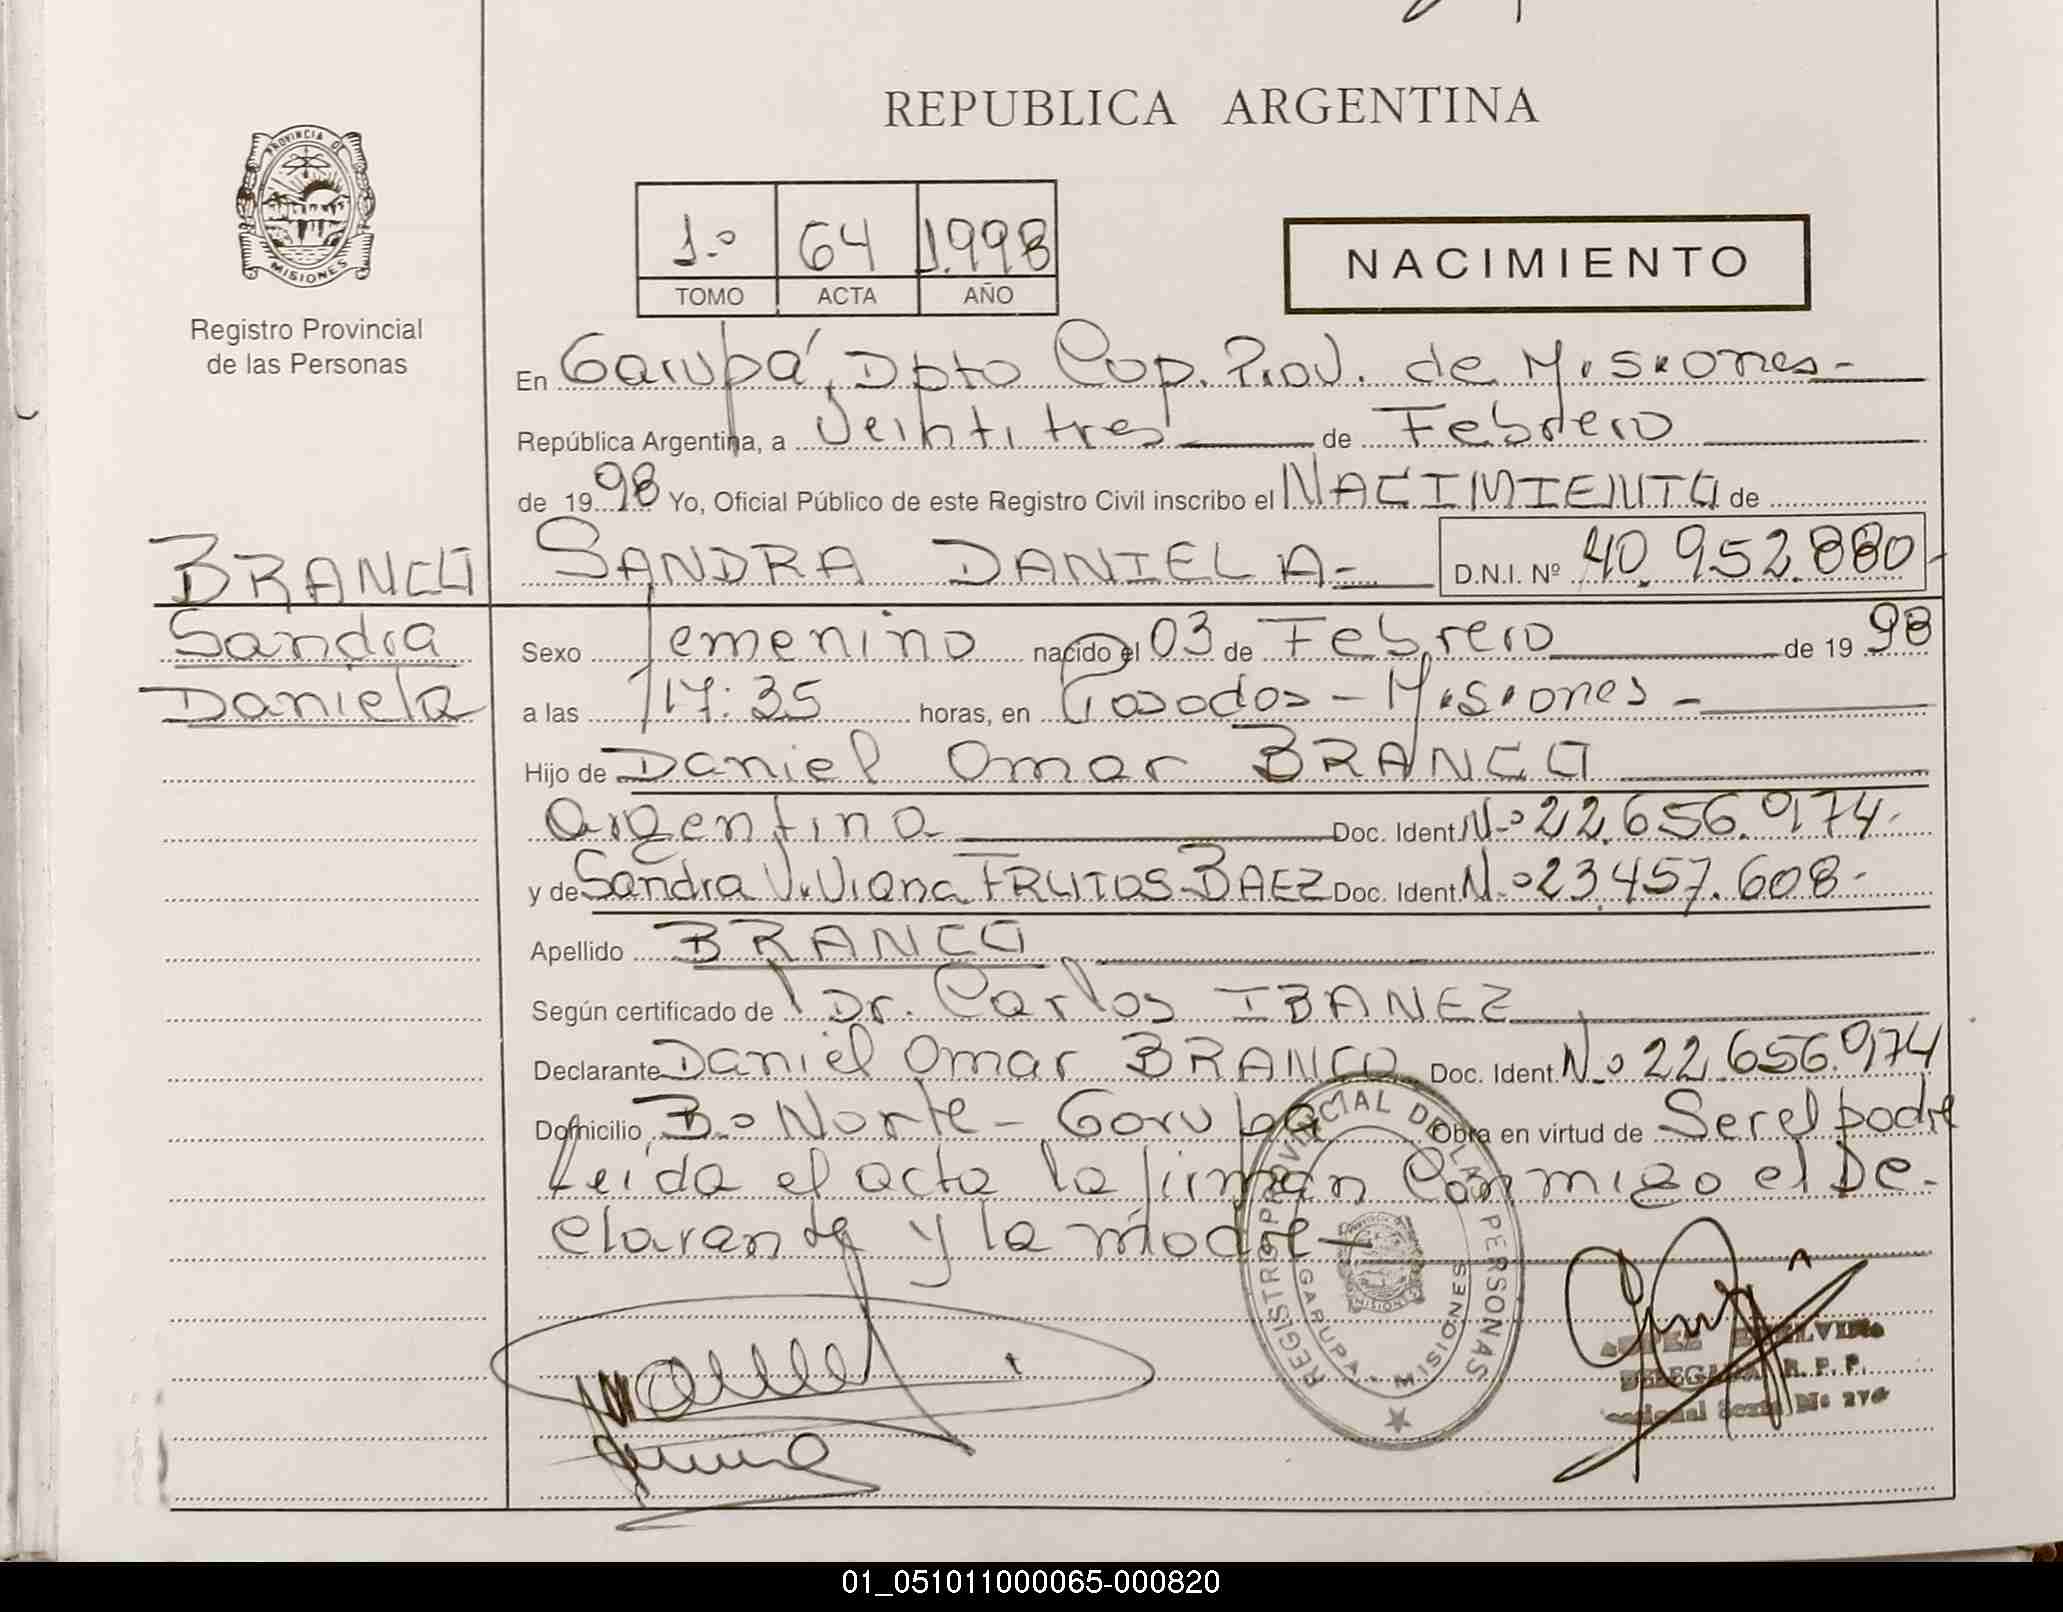 REPUBLICA ARGENTINA
PROVINCIA DE MISIONES
Registro Provincial
de las Personas
1.º 64 1.998
TOMO ACTA AÑO
NACIMIENTO
En Garupá, Dpto Cap. Prov. de Misiones-
República Argentina, a Veintitres de Febrero
de 1998 Yo, Oficial Público de este Registro Civil inscribo el NACIMIENTO de
BRANCO SANDRA DANIELA- D.N.I. Nº 40.952.880-
Sandra Sexo femenino nacido el 03 de Febrero de 1998
Daniela a las 17:35 horas, en Posadas - Misiones -
Hijo de Daniel Omar BRANCO
Argentina Doc. Ident. Nº 22.656.974-
y de Sandra Viviana FRUTOS-BAEZ Doc. Ident. Nº 23.457.608-
Apellido BRANCO
Según certificado de Dr. Carlos IBANEZ
Declarante Daniel Omar BRANCO Doc. Ident. Nº 22.656.974
Domicilio Bº Norte - Garupa Obra en virtud de Ser el padre
Leída el acta la firman Conmigo el De-
clarante y la madre-
REGISTRO PROVINCIAL DE LAS PERSONAS
GARUPA - MISIONES
MISIONES
DELEGADA R.P.P.
01_051011000065-000820